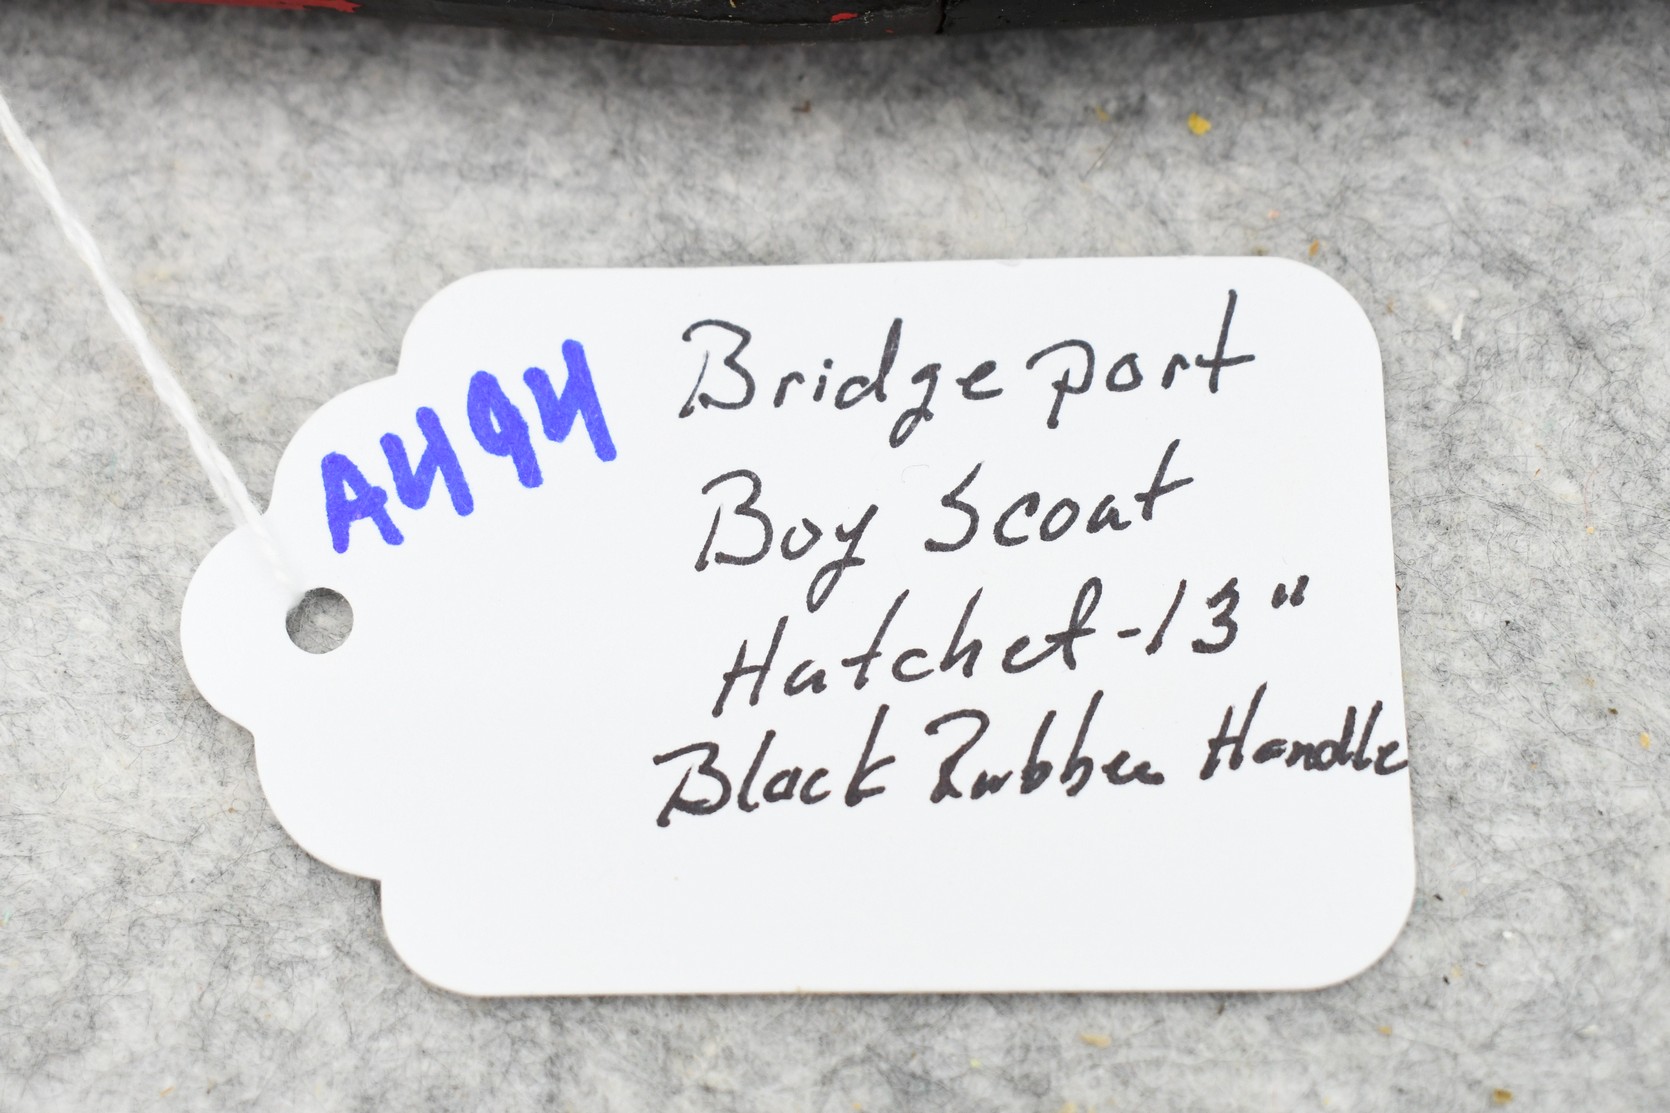 A494
Bridgeport
Boy Scout
Hatchet-13"
Black Rubber Handle